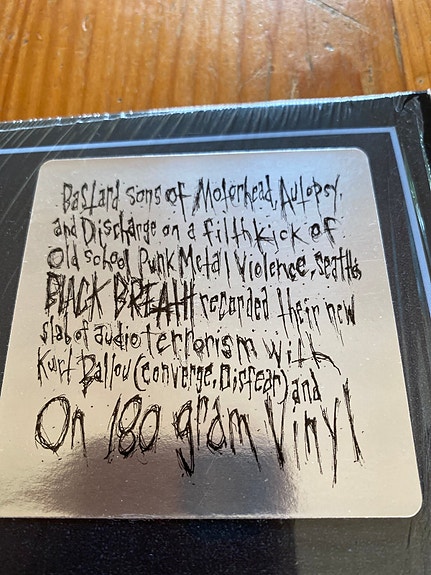 Bastard sons of Motorhead, Autopsy,
and Discharge on a filthkick of
Old school Punk Metal Violence, Seattles
BLACK BREATH recorded their new
slab of audio terrorism with
Kurt Ballou (Converge, Disfear) and
On 180 gram Vinyl